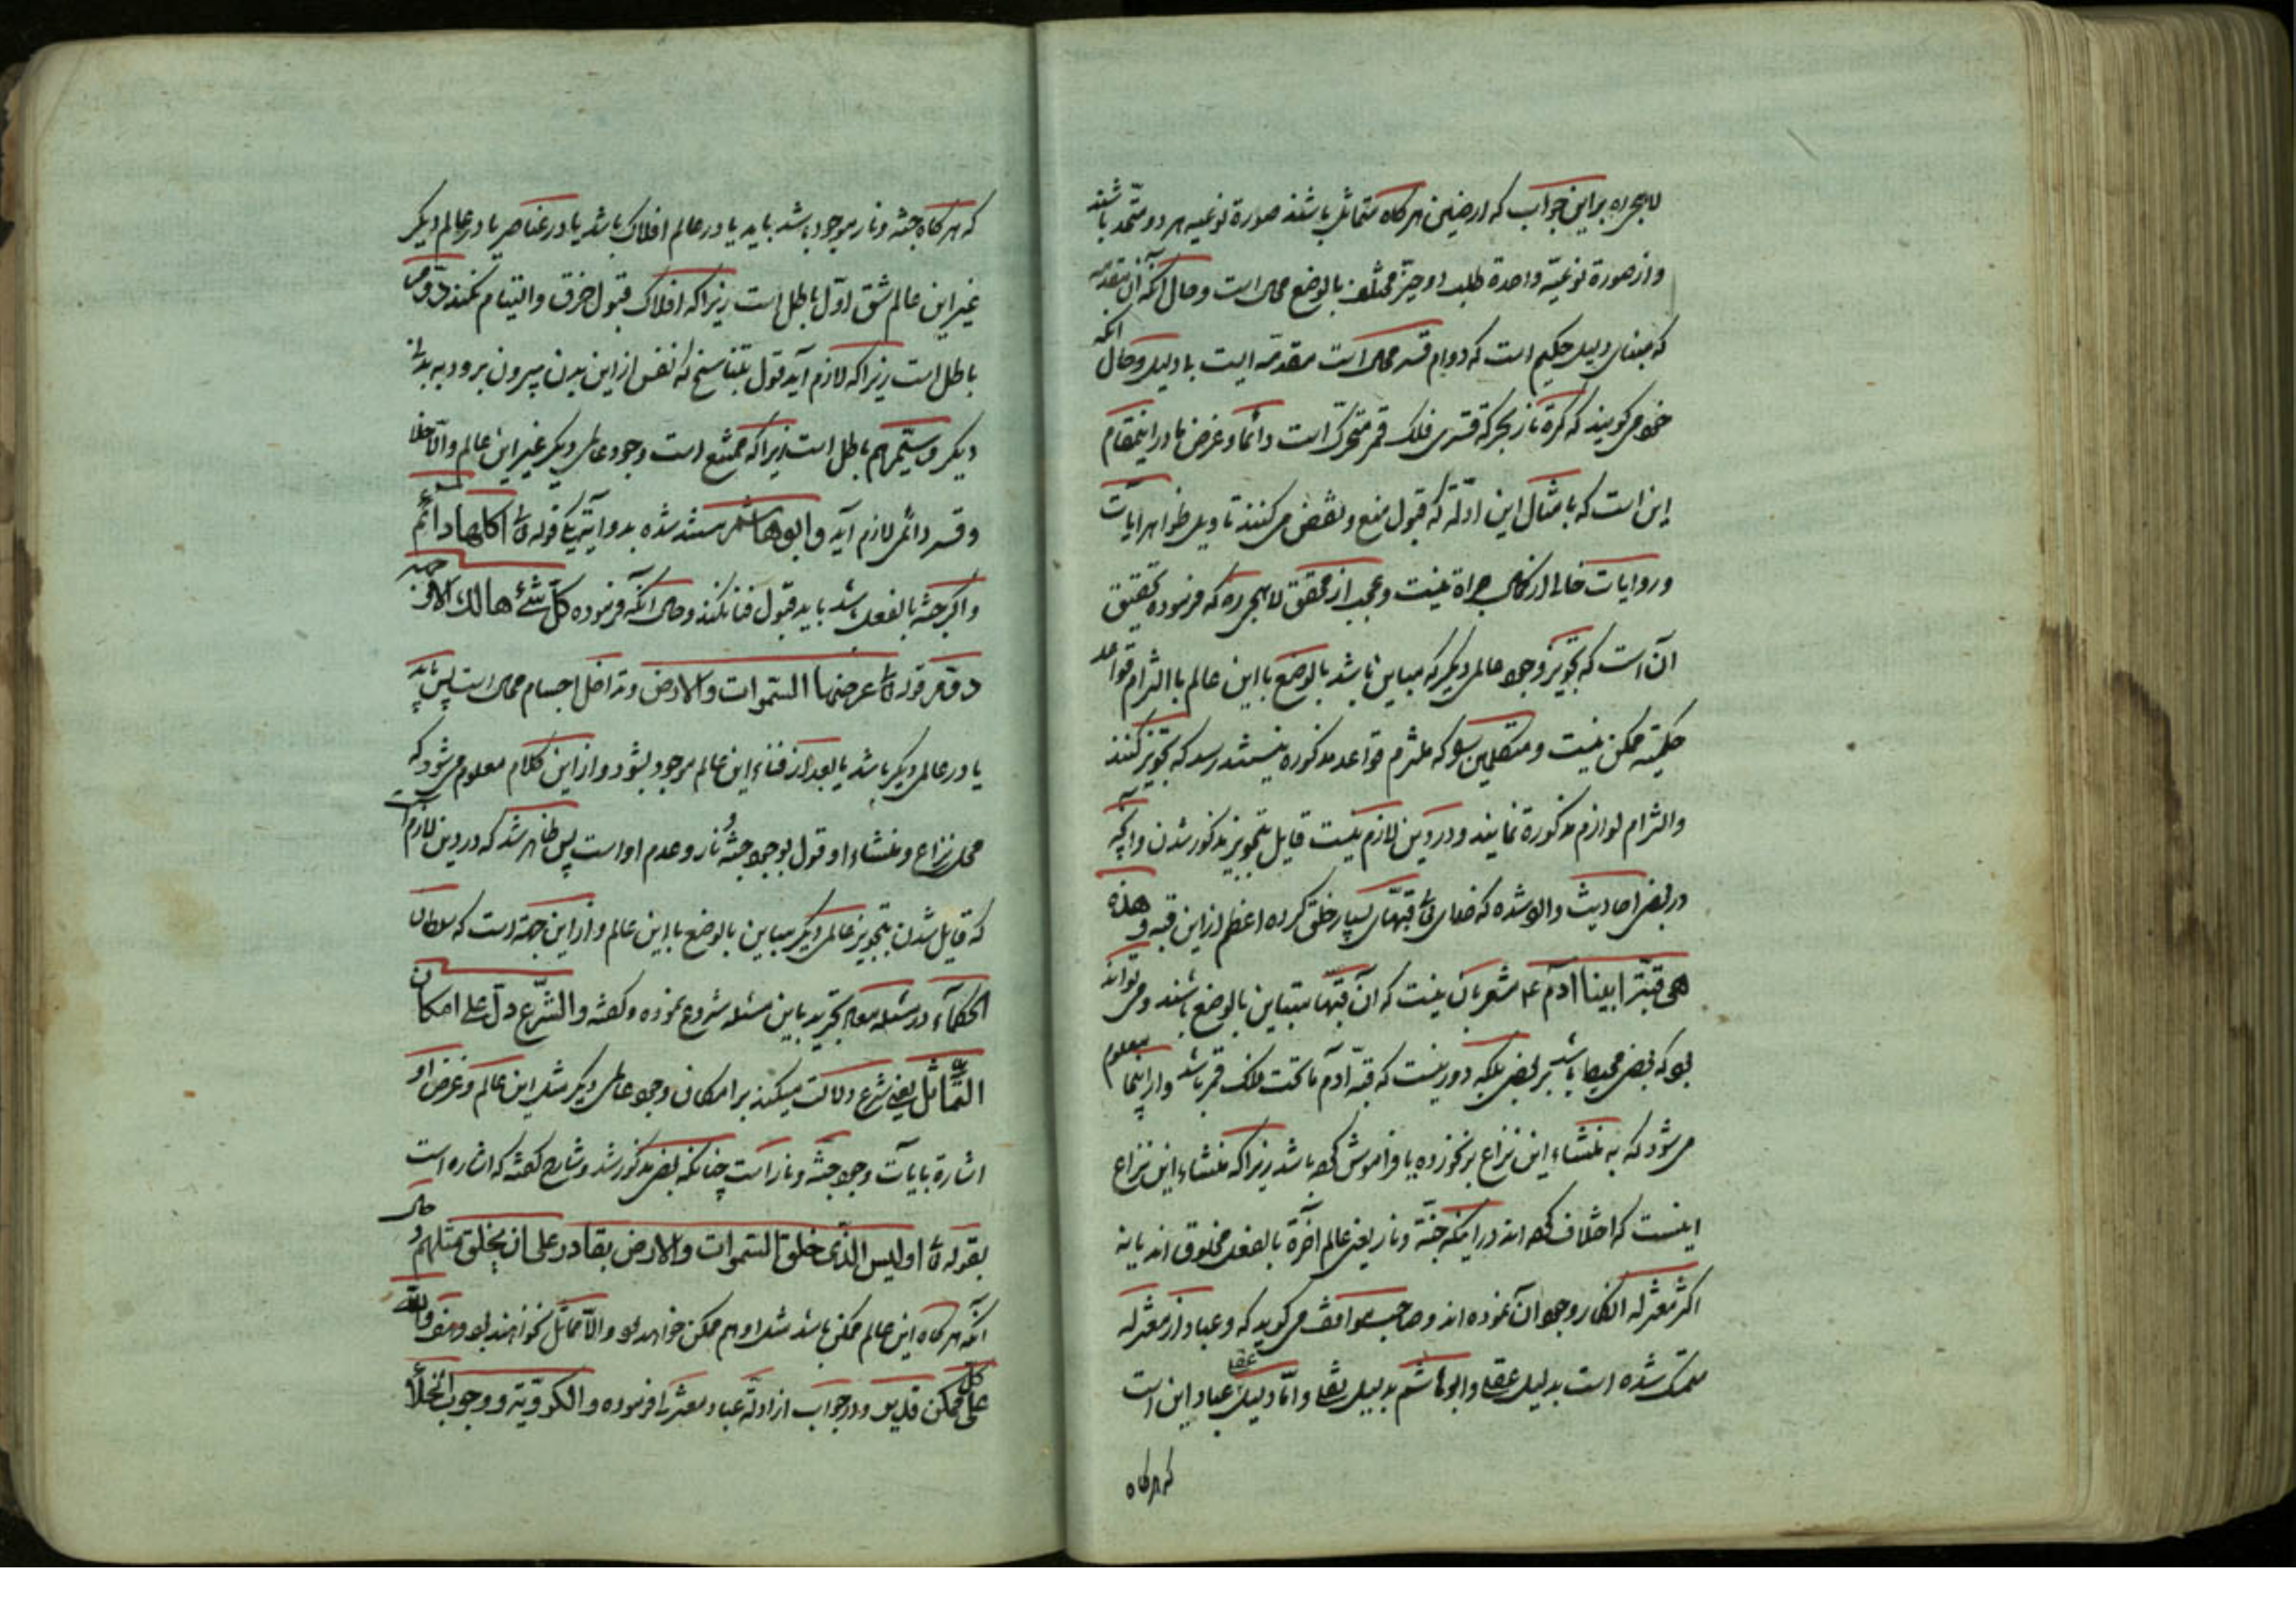 براین جواب که ارضین هرکاه متماثل باشند صورة نوعیه هر دو متحد باشند
واز صورة نوعیّه واحدة طلب دو حیّز مختلف بالوضع محال است وحال آنکه آن مقدمه
که مبنای دلیل حکیم است که دوام قسر محال است مقدمه ایست بادلیل وحال آنکه
خود میکویند که کرۀ نار بحرکة قسری فلک قمر متحرّک است دائما وغرض ما دراینمقام
این است که بامثال این ادلّه که قبول منع ونقض میکنند تاویل ظواهر ایات
وروایات خالی از کمال جراة نیست وعجب از محقق لاهیجی ره که فرموده تحقیق
آن است که تجویز وجود عالمی دیکر که مباین باشد بالوضع بااین عالم باالتزام قواعد
حکمیّه ممکن نیست ومتکلمین را که ملتزم قواعد مذکوره نیستند رسد که تجویز کنند
والتزام لوازم مذکورة نمایند ودر دین لازم نیست قایل بتجویز مذکور شدن وآنچه
در بعض احادیث وارد شده که خدای تع قبّهای بسیار خلق کرده اعظم ازاین قبه وهذه
هی قبّة ابینا آدم ع مشعر بان نیست که آن قبّها متباین بالوضع باشند ومیتواند
بود که بعض محیط باشد بر بعض بلکه دور نیست که قبّه آدم ماتحت فلک قمر باشد وازاینجا معلوم
میشود که به منشاء این نزاع برنخورده یا فراموش کرده باشد زیراکه منشاء این نزاع
اینست که اختلاف کرده اند دراینکه جنّة ونار یعنی عالم آخرة بالفعل مخلوق اند یا نه
اکثر معتزله انکار وجود آن نموده اند وصاحب مواقف میکوید که وعباد از معتزله
متمسک شده است بدلیل عقلی وابوهاشم بدلیل نقلی وامّا دلیل عقلی عباد این است
که هرکاه
که هرکاه جنّة ونار موجود باشد باید یا در عالم افلاک باشد یا در عناصر یا در عالم دیکر
غیر این عالم شق اوّل باطل است زیراکه افلاک قبول خرق والتیام نمیکند ودوّمی
باطل است زیراکه لازم آید قول بتناسخ که نفس ازاین بدن بیرون برود به بدن
دیکر وسیّم هم باطل است زیراکه ممتنع است وجود عالمی دیکر غیر این عالم والّا خلا
وقسر دائمی لازم آید وابوهاشم مستند شده بدو آیة یکی قوله تع اکلها دائم
واکر جنّة بالفعل باشد باید قبول فنا نکند وحال آنکه فرموده کلّ شئ هالک الا وجهه
دوّم قوله تع عرضها السّموات والارض وتداخل اجسام محال است پس باید
یا در عالمی دیکر باشد یا بعد از فناء این عالم موجود بشود وازاین کلام معلوم میشود که
محل نزاع ومنشاء او قول بوجود جنّة ونار وعدم او است پس ظاهر شد که در دین لازم است
که قایل شدن بتجویز عالمی دیکر مباین بالوضع بااین عالم وازاین جهة است که سلطان
الحکمآء در مسئله معاد تجرید باین مسئله شروع نموده وکفته والسّمع دلّ علی امکان
التّماثل یعنی شرع دلالت میکند بر امکان وجود عالمی دیکر مثل این عالم وغرض او
اشارة بایات وجود جنّة ونار است چنانکه بعض مذکور شد وشارح کفته که اشاره است
بقوله تع اولیس الّذی خلق السّموات والارض بقادر علی ان یخلق مثلهم وحال
آنکه هرکاه این عالم ممکن باشد مثل او هم ممکن خواهد بود والّا مماثل نخواهند بود والله
علی کل ممکن قدیر ودر جواب از ادلّه عباد معتزلی فرموده والکرویّة ووجوب الخلأ